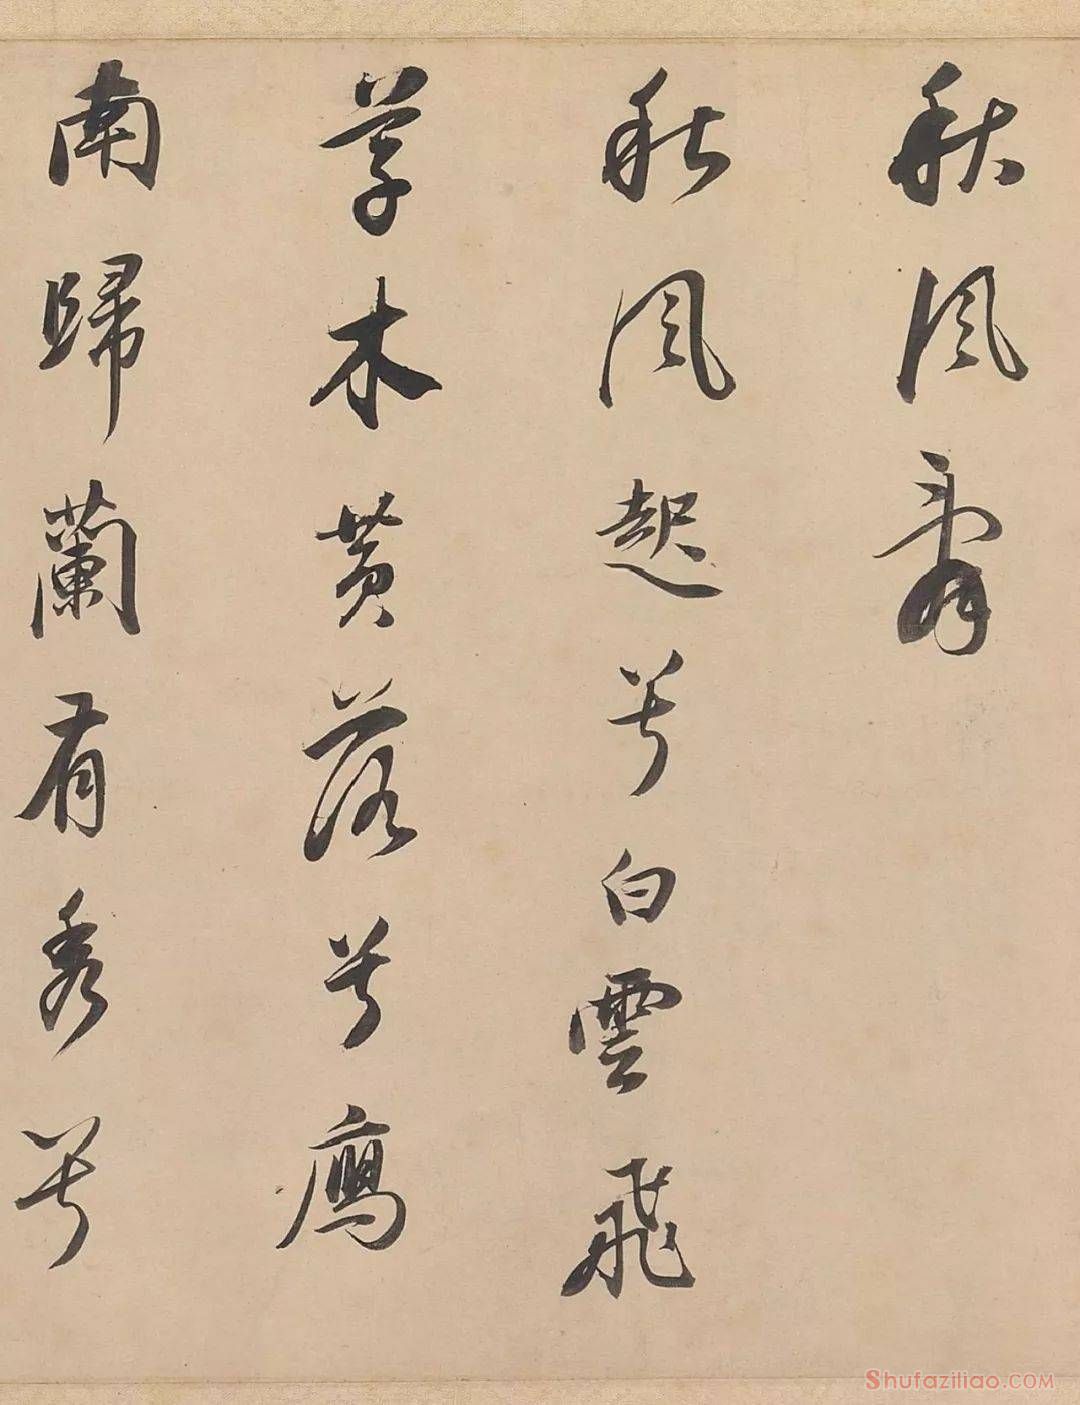 秋風辭
秋風起兮白雲飛
草木黃落兮鴈
南歸蘭有秀兮
Shufaziliao.COM